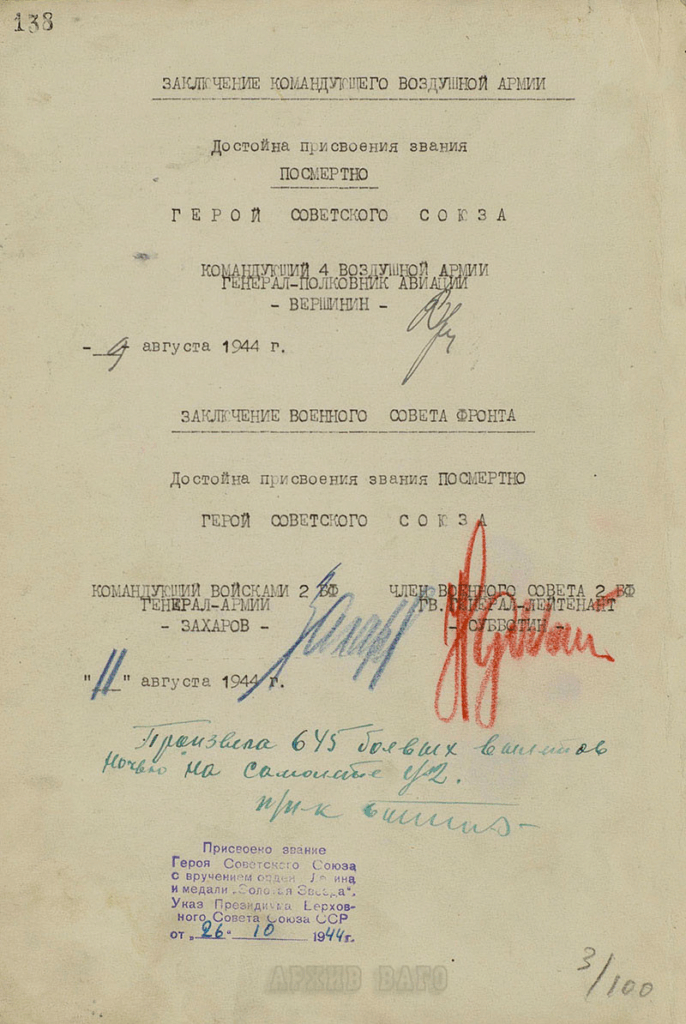 138
ЗАКЛЮЧЕНИЕ КОМАНДУЮЩЕГО ВОЗДУШНОЙ АРМИИ
Достойна присвоения звания
ПОСМЕРТНО
ГЕРОЙ СОВЕТСКОГО СОЮЗА
КОМАНДУЮЩИЙ 4 ВОЗДУШНОЙ АРМИИ
ГЕНЕРАЛ-ПОЛКОВНИК АВИАЦИИ
- ВЕРШИНИН -
- 9 августа 1944 г.
ЗАКЛЮЧЕНИЕ ВОЕННОГО СОВЕТА ФРОНТА
Достойна присвоения звания ПОСМЕРТНО
ГЕРОЙ СОВЕТСКОГО СОЮЗА
КОМАНДУЮЩИЙ ВОЙСКАМИ 2 БФ ЧЛЕН ВОЕННОГО СОВЕТА 2 БФ
ГЕНЕРАЛ-АРМИИ ГВ. ГЕНЕРАЛ-ЛЕЙТЕНАНТ
- ЗАХАРОВ - - СУББОТИН -
"11" августа 1944 г.
Произвела 645 боевых вылетов
ночью на самолете У-2.
Присвоено звание
Героя Советского Союза
с вручением орден Ленина
и медали „Золотая Звезда".
Указ Президиума Верхов-
ного Совета Союза ССР
от „26" 10 1944г.
АРХИВ ВАГО
3/100